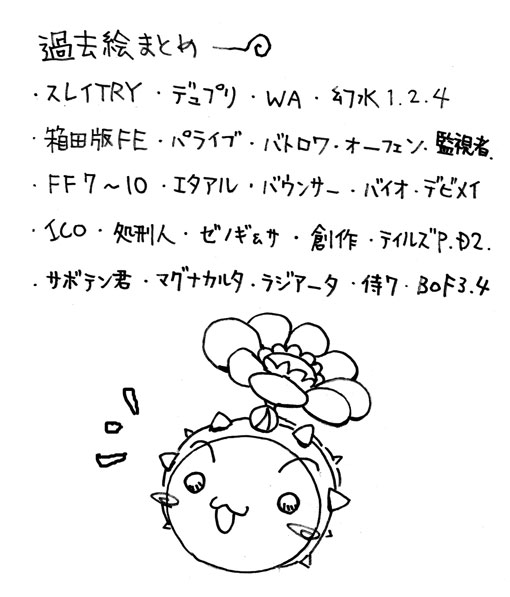 過去絵まとめ
・スレイTRY ・デュプリ ・WA ・幻水1.2.4
・箱田版FE ・パライブ ・バトロワ・オーフェン・監視者
・FF7〜10 ・エタアル ・バウンサー ・バイオ・デビメイ
・ICO ・処刑人 ・ゼノギ&サ ・創作 ・テイルズP.D2.
・サボテン君 ・マグナカルタ ・ラジアータ ・侍7 ・BOF3.4